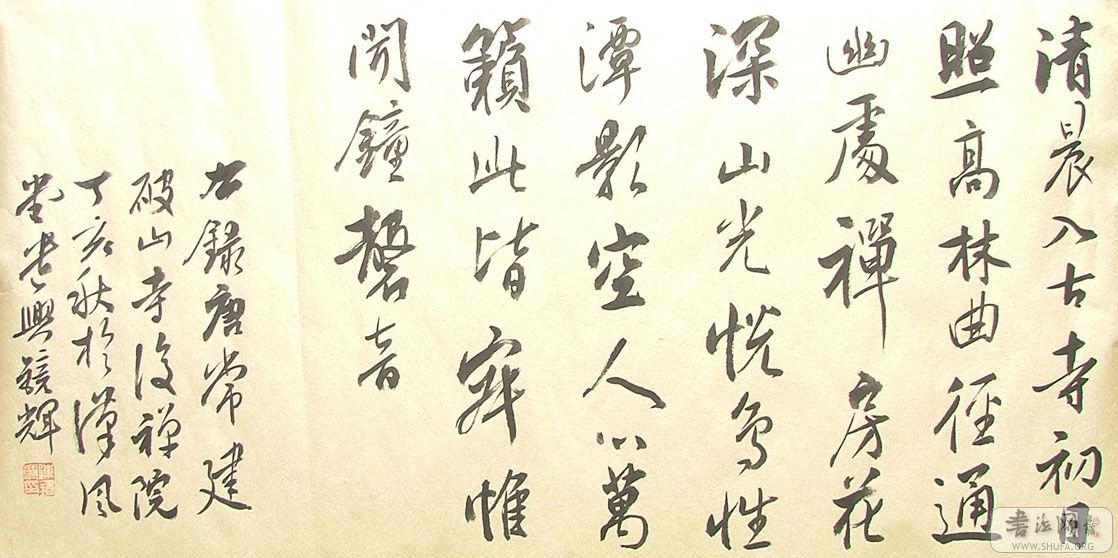 清晨入古寺初日
照高林曲徑通
幽處禪房花
深山光悦鳥性
潭影空人心萬
籟此皆寂惟
聞鐘磬音
右錄唐常建
破山寺後禪院
丁亥秋於漢風
堂興鏡輝
WWW.SHUFA.ORG